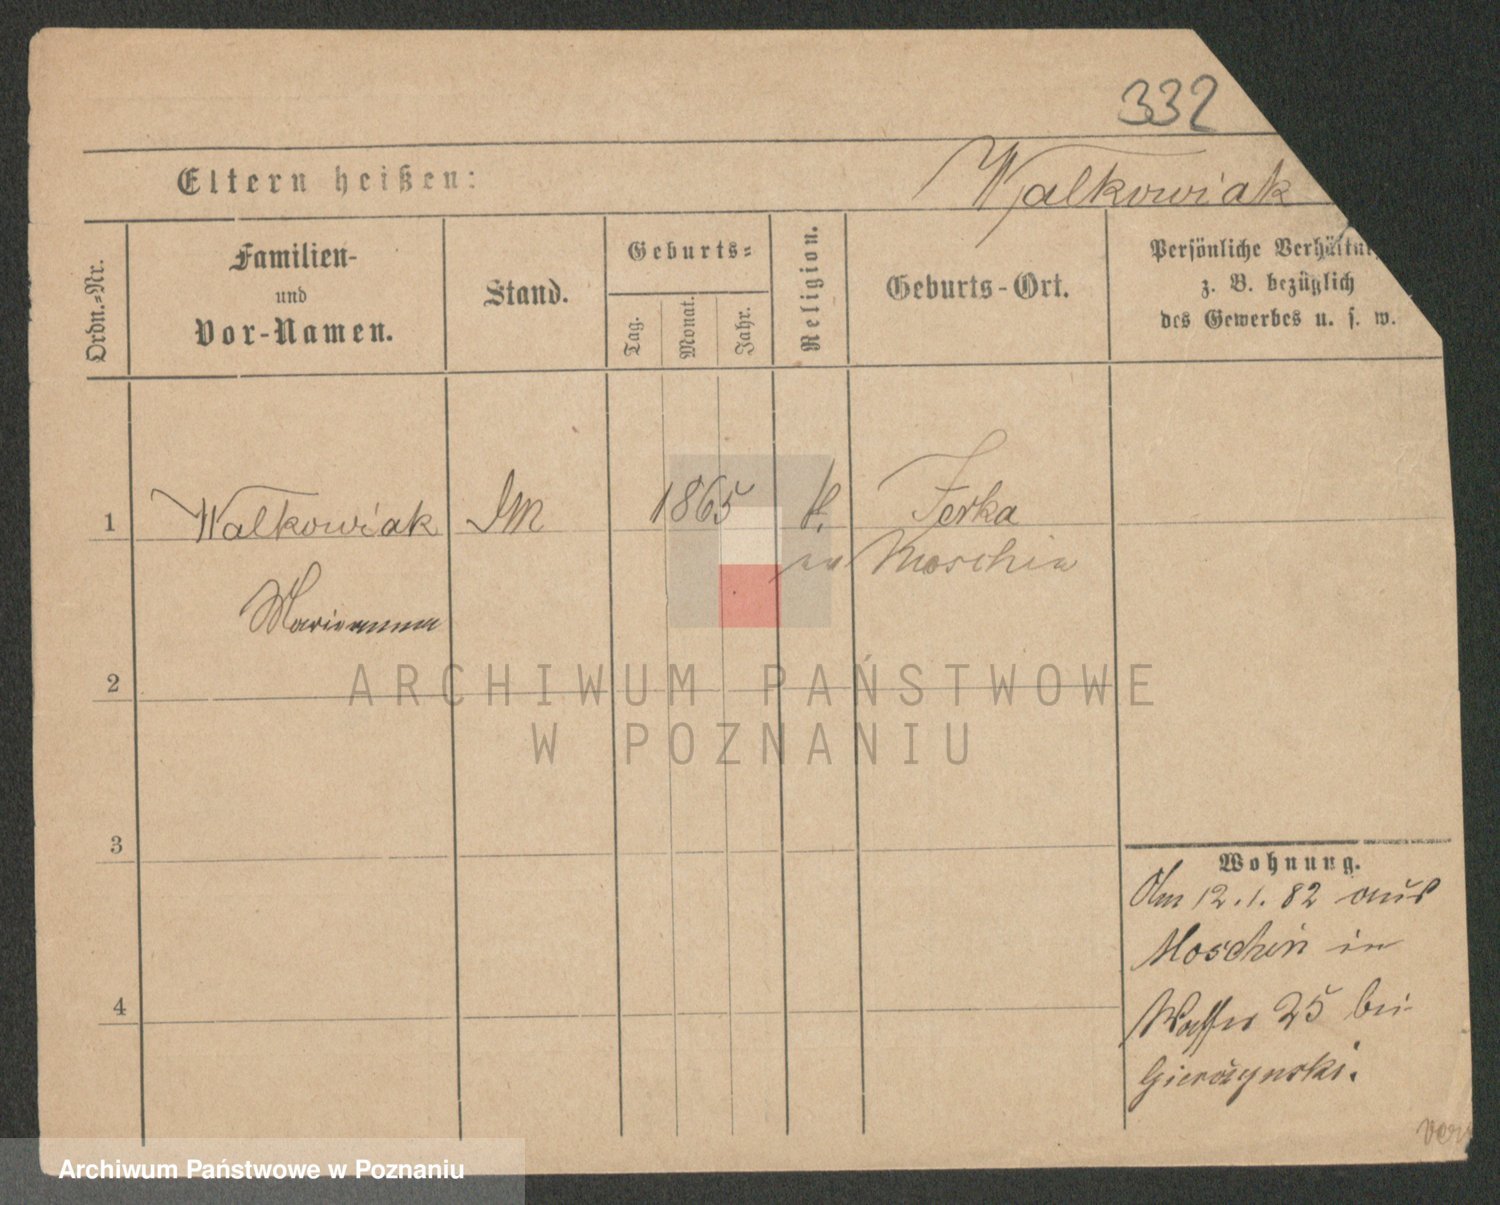 332
Eltern heißen:
Walkowiak
Ordn.-Nr.
Familien-
und
Vor-Namen.
Stand.
Geburts-
Tag.
Monat.
Jahr.
Religion.
Geburts-Ort.
Persönliche Verhältni
z. B. bezüglich
des Gewerbes u. s. w.
1
Walkowiak
1865
k.
Jerka
in Moschin
Marianna
2
ARCHIWUM PAŃSTWOWE
W POZNANIU
3
Wohnung.
Am 12.1.82 aus
Moschin in
Wasser 25 bei
4
Archiwum Państwowe w Poznaniu